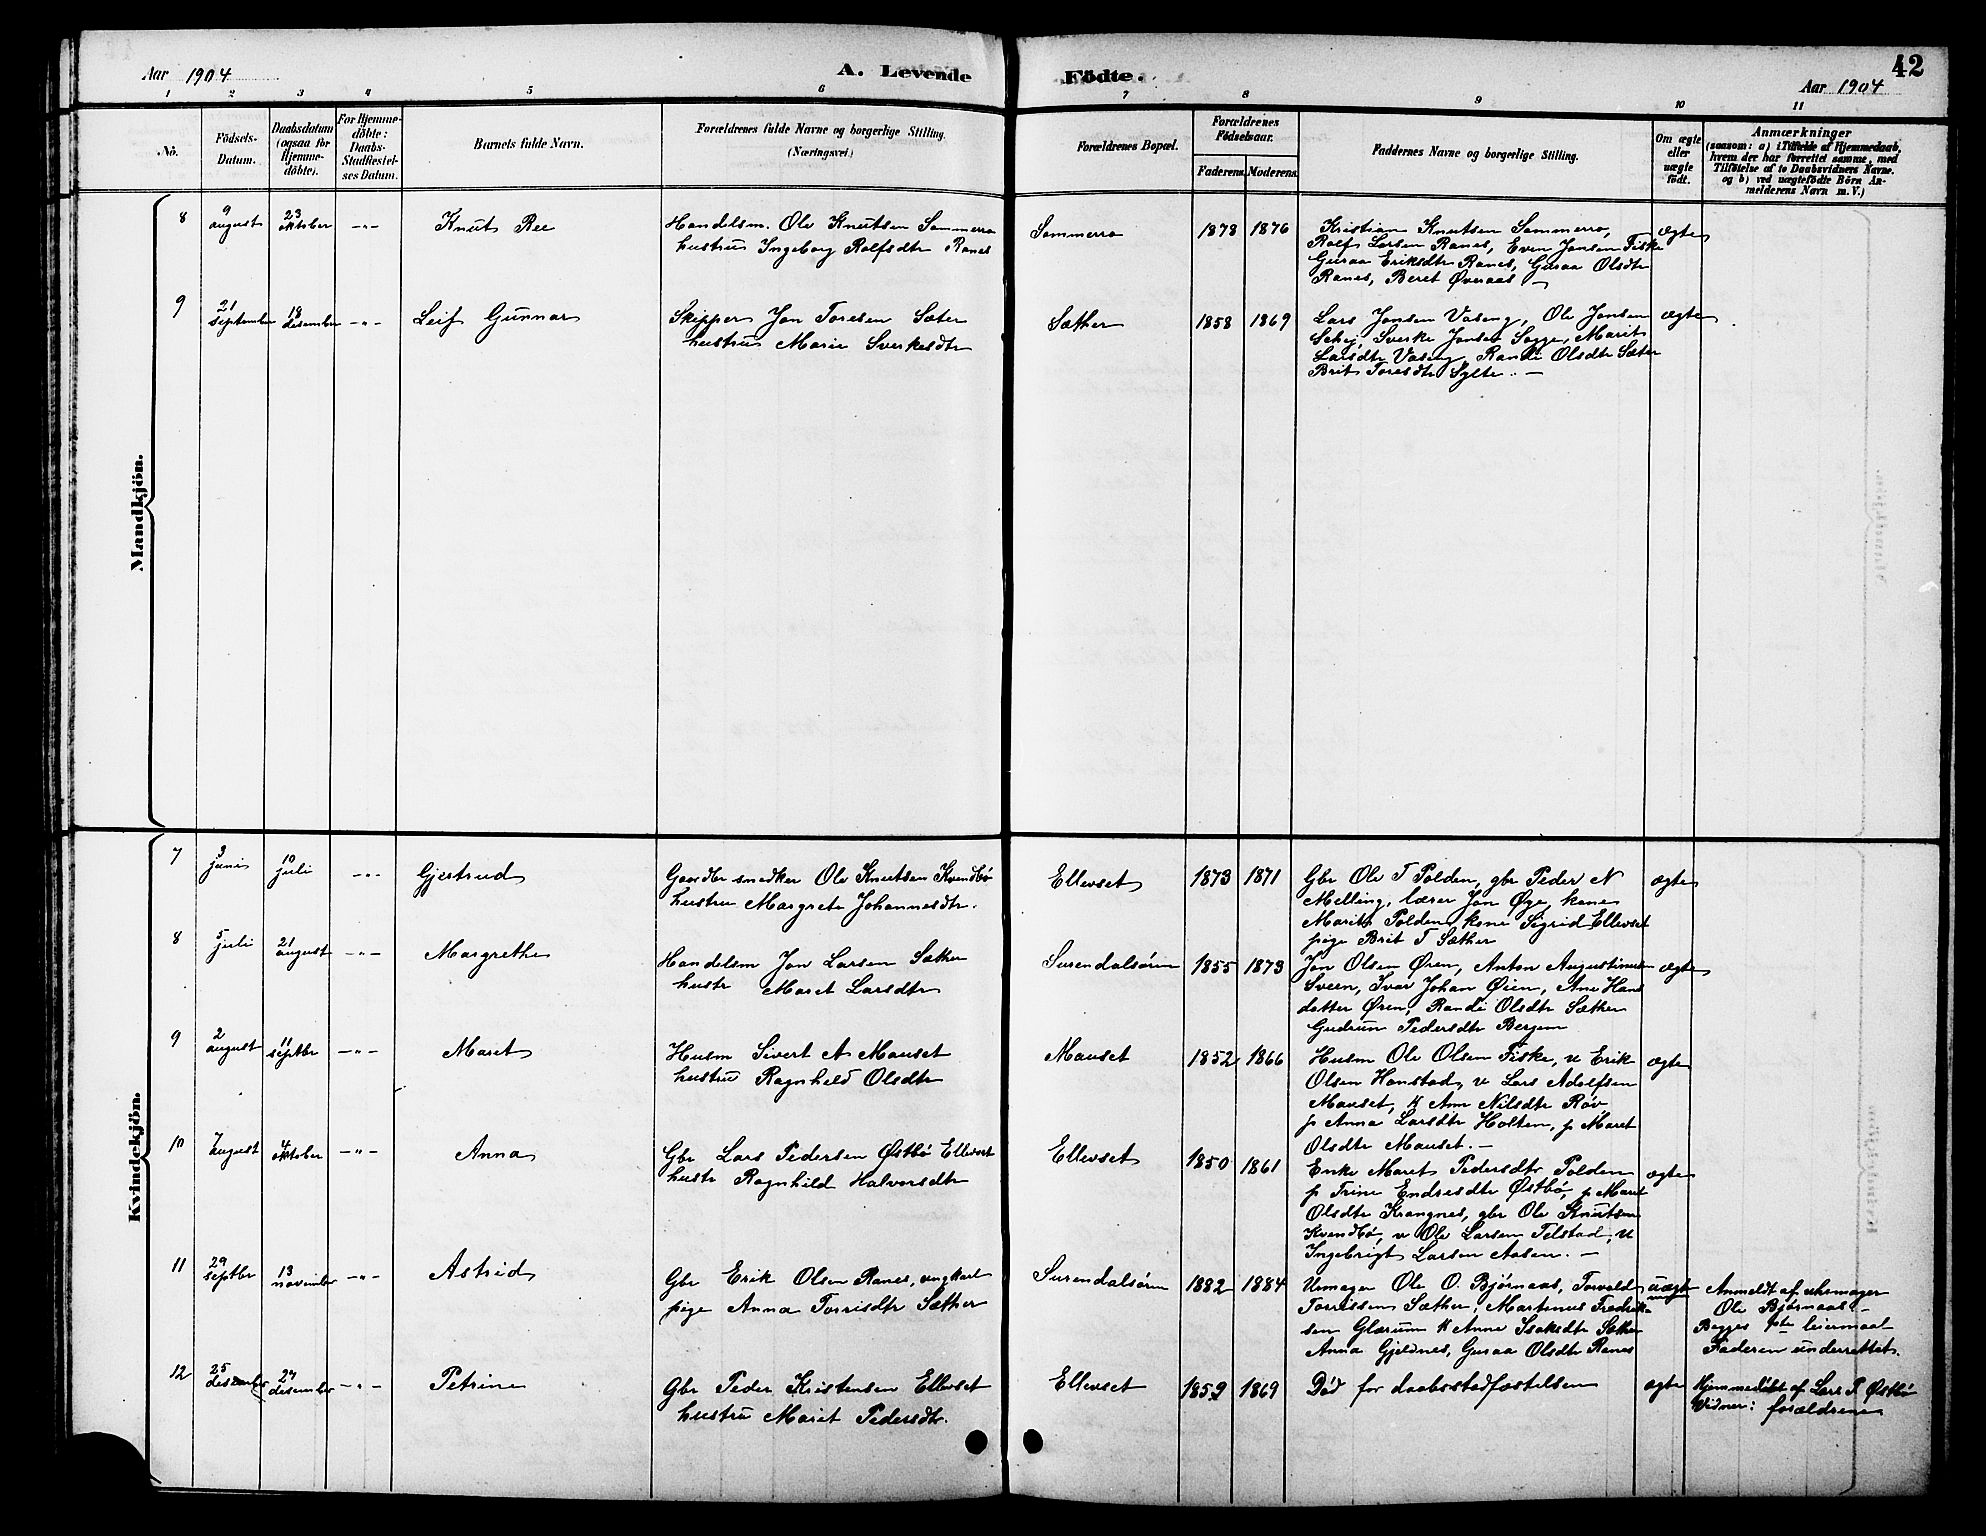 Aar 1904
A. Levende Födte.
42
Aar 1904
1 2 3 4 5 6 7 8 9 10 11
Nô.
Födsels-Datum.
Daabsdatum (ogsaa for Hjemme-döbte).
For Hjemme-döbte: Daabs-Stadfæstel-ses Datum.
Barnets fulde Navn.
Forældrenes fulde Navne og borgerlige Stilling. (Næringsvei.)
Forældrenes Bopæl.
Forældrenes Födselsaar.
Faderens. Moderens.
Faddernes Navne og borgerlige Stilling.
Om ægte eller uægte født.
Anmærkninger
(saasom: a) i Tilfælde af Hjemmedaab,
hvem der har forrettet samme, med
Tilföielse af to Daabsvidners Navne.
og b) ved uægtefödte Börn An-
melderens Navn m. V.)
Mandkjön.
8
9 august
23 oktober
-"-
Knut Ree
Handelsm. Ole Knutsen Sommerro
hustru Ingeborg Rolfsdtr Ranes
Sommerro
1878 1876
Kristian Knutsen Sommerro,
Rolf Larsen Ranes, Even Jonsen Fiske
Guraa Eriksdtr Ranes, Guraa Olsdtr
Ranes, Beret Øveraas —
ægte
9
21 september
18 desember
-"-
Leif Gunnar
Skipper Jon Toresen Sæter
hustru Marie Sverkesdtr
Sæther
1858 1869
Lars Jonsen Vaseng, Ole Jonsen
Schei, Sverke Jonsen Sogge, Marit
Larsdtr Vaseng, Randi Olsdtr Sæter
Brit Toresdtr Sylte. —
ægte
Kvindekjön.
7
3 juni
10 juli
-"-
Gjertrud
Gaardbr snedker Ole Knutsen Kvendbø
hustru Margrete Johannesdtr.
Ellevset
1873 1871
Gbr Ole T Polden, gbr Peder N
Melling, lærer Jon Øye, kone
Marit Polden, kone Sigrid Ellevset
pige Brit T Sæther
ægte
8
5 juli
21 august
-"-
Margrethe
Handelsm Jon Larsen Sæther
hustr Maret Larsdtr
Surendalsøren
1855 1873
Jon Olsen Øren, Anton Augustinusen
Sveen, Ivar Johan Øien, Ane Hans
datter Øren, Randi Olsdtr Sæther
Gudrun Pedersdtr Bergem
ægte
9
2 august
11 septbr
-"-
Maret
Husm Sivert A Mauset
hustru Ragnhild Olsdtr
Mauset
1852 1866
Husm Ole Olsen Fiske, u Erik
Olsen Hanstad, u Lars Adolfsen
Mauset, k Ane Nilsdtr Røv
p Anna Larsdtr Holten, p Maret
Olsdtr Mauset. —
ægte
10
7 august
4 oktober
-"-
Anna
Gbr Lars Pedersen Østbø Ellevset
hustr Ragnhild Halvorsdtr
Ellevset
1850 1861
Enke Maret Pedersdtr Polden
p Trine Endresdtr Østbø, p Maret
Olsdtr Krangnes, gbr Ole Knutsen
Kvendbø, u Ole Larsen Telstad, u
Ingebrigt Larsen Aasen. —
ægte
11
29 septbr
13 november
-"-
Astrid
Gbr Erik Olsen Ranes, ungkarl
pige Anna Torrisdtr Sæther
Surendalsøren
1882 1884
Urmager Ole O. Bjørnaas, Torvald
Torrissen Sæther, Martinus Fredrik-
sen Glærum k Anne Isaksdtr Sæther
Anna Gjeldnes, Guraa Olsdtr Ranes
uægte
Anmeldt af uhrmager
Ole Bjørnaas. —
Begges 1ste leiermaal
Faderen underrettet.
12
25 desember
27 desember
-"-
Petrine
Gbr Peder Kristensen Ellevset
hustru Maret Pedersdtr.
Ellevset
1859 1869
Død før daabsstadfæstelsen
ægte
Hjemmedøbt af Lars P. Østbø
Vidner: forældrene